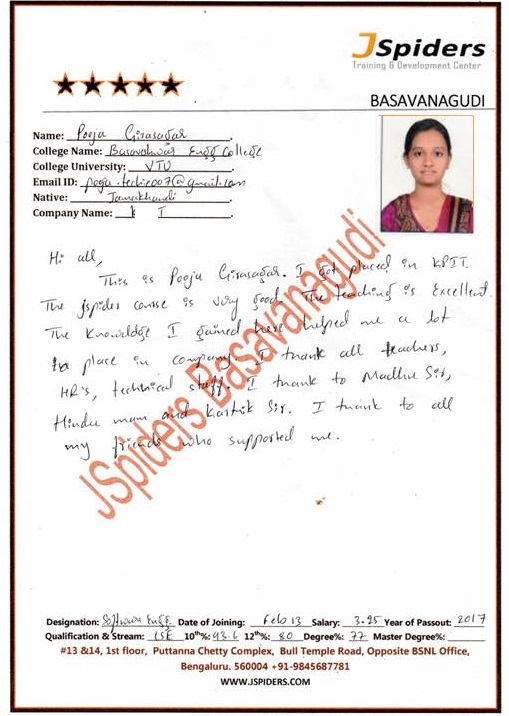 JSpiders
Training & Development Center
BASAVANAGUDI
Name: Pooja Girasagar.
College Name: Basaveshwar Engg College
College University: VTU.
Email ID: pooja.techie007@gmail.com
Native: Jamakhandi.
Company Name: K I.
Hi all,
This is Pooja Girasagar. I got placed in KPIT.
The jspider course is very good. The teaching is Excellent.
The knowledge I gained here helped me a lot
to place in company. I thank all teachers,
HR's, technical staff. I thank to Madhu Sir,
Hindu mam and Kartik Sir. I thank to all
my friends who supported me.
JSpiders Basavanagudi
Designation: Software Engg. Date of Joining: Feb 13 Salary: 3.25 Year of Passout: 2017
Qualification & Stream: ISE 10th%: 93.6 12th%: 80 Degree%: 77 Master Degree%:
#13 &14, 1st floor, Puttanna Chetty Complex, Bull Temple Road, Opposite BSNL Office,
Bengaluru. 560004 +91-9845687781
WWW.JSPIDERS.COM